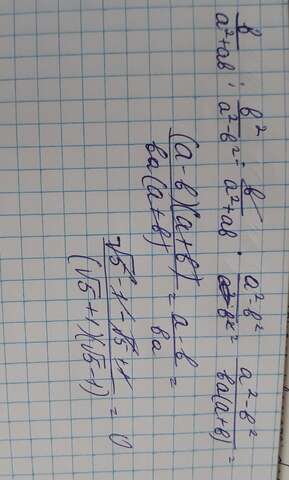 b/(a²+ab) : b²/(a²-b²) = b/(a²+ab) · (a²-b²)/b² = (a²-b²)/(ba(a+b)) =
(a-b)(a+b)/(ba(a+b)) = (a-b)/(ba) =
(√5-1-√5+1)/((√5+1)(√5-1)) = 0